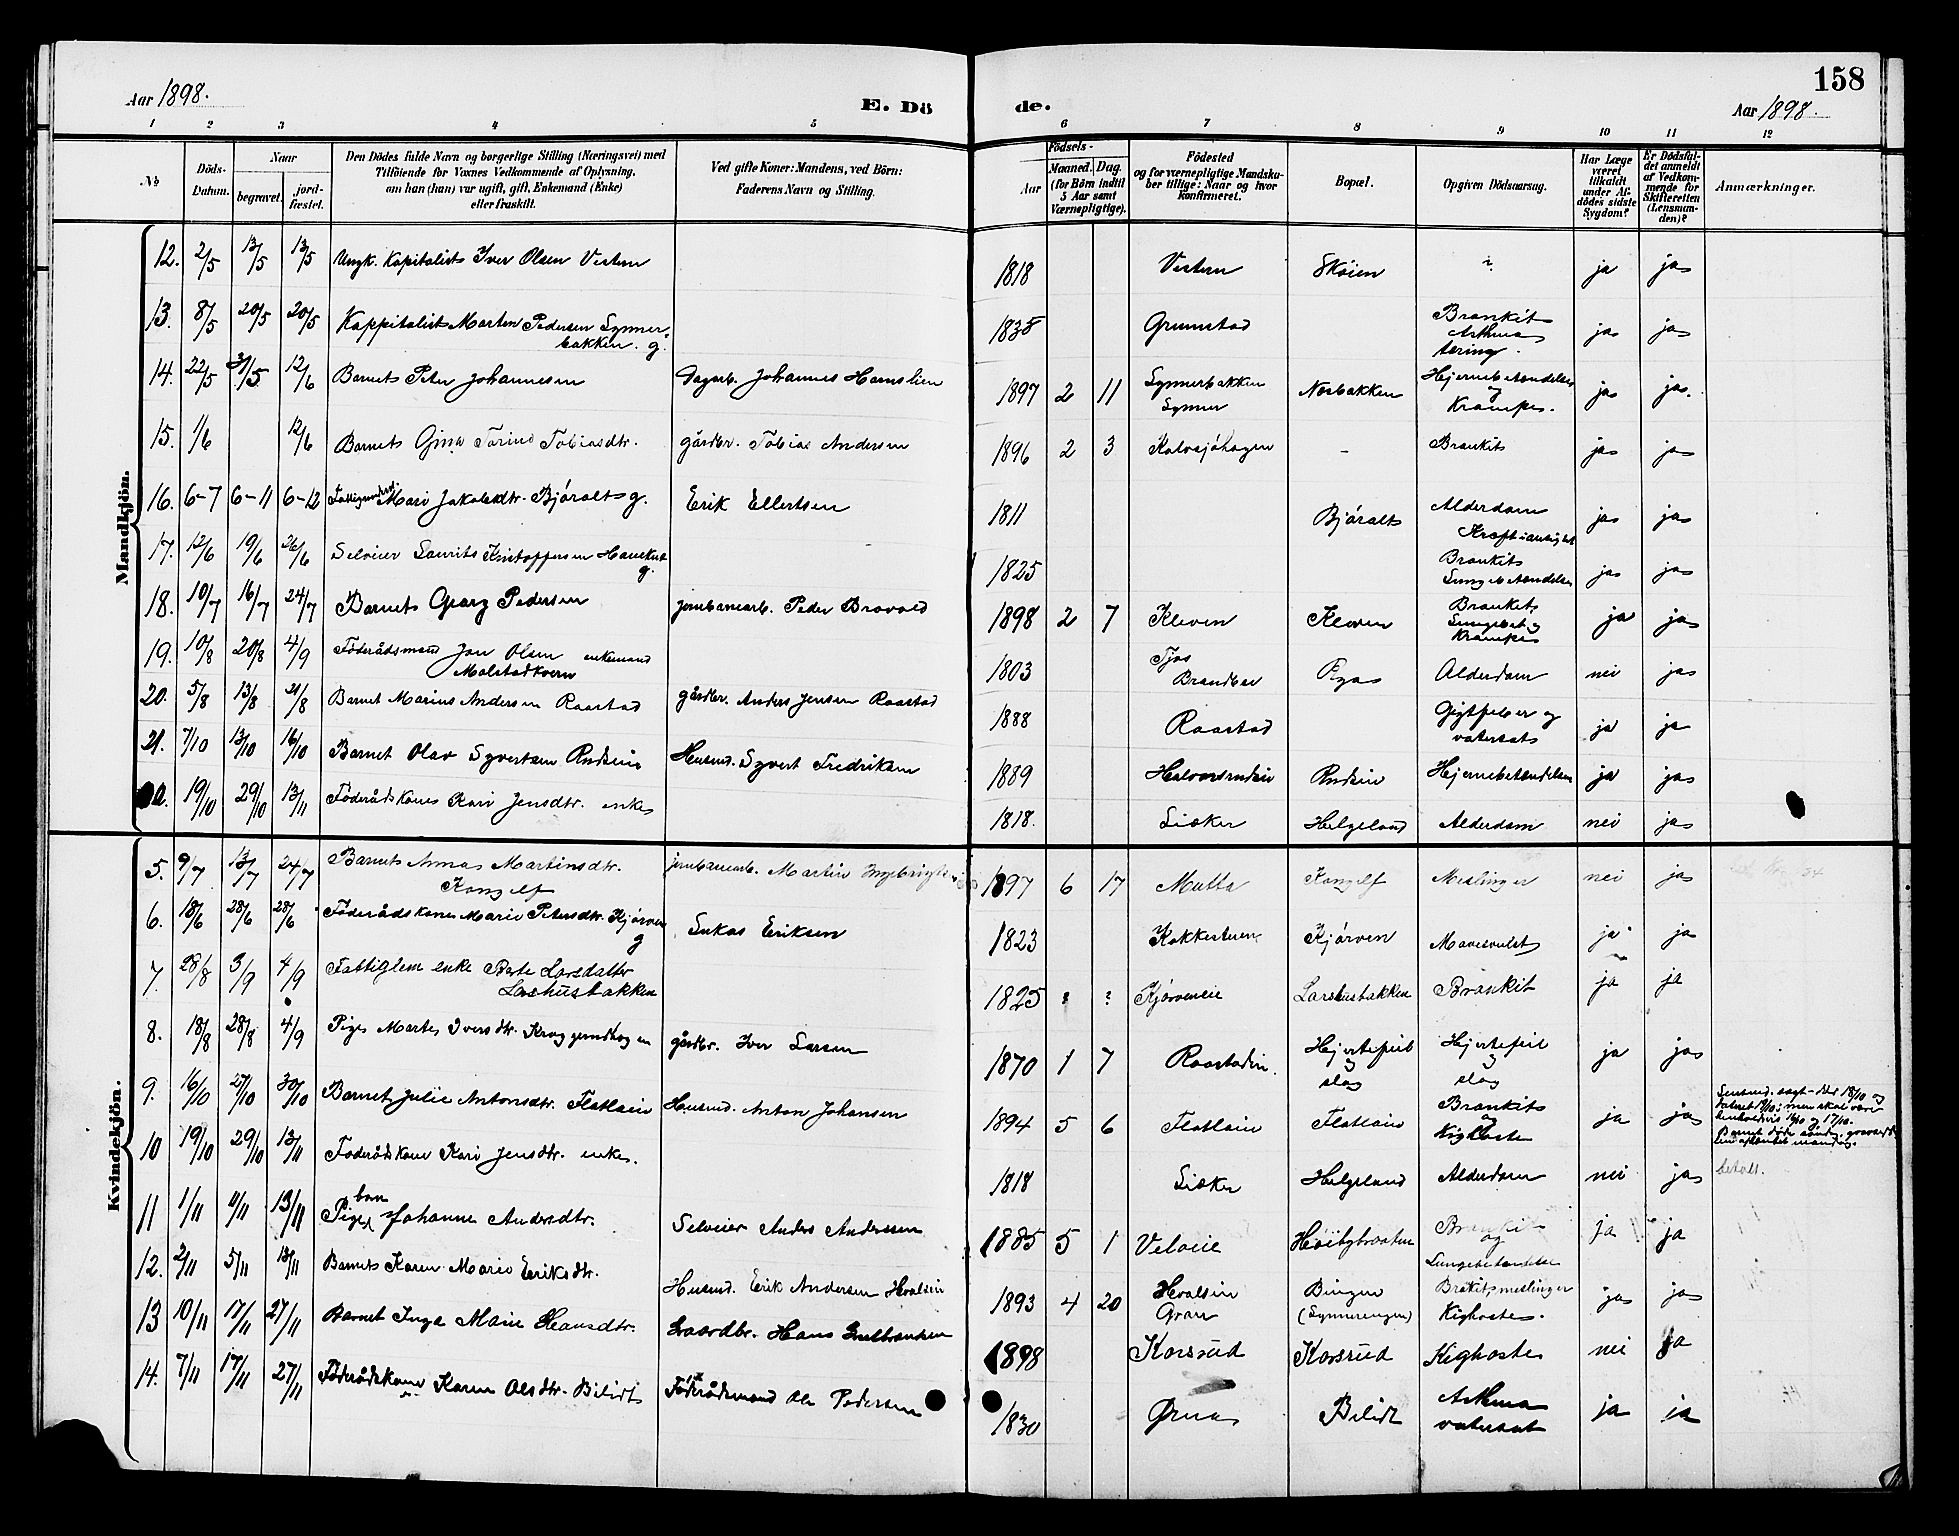 158
Aar 1898.
E. Dö
de.
Aar 1898.
1 2 3 4 5 6 7 8 9 10 11 12
No
Döds-Datum.
Naar
begravet.
jord-fæstet.
Den Dödes fulde Navn og borgerlige Stilling (Næringsvei) med
Tilföiende for Voxnes Vedkommende af Oplysning,
om han (hun) var ugift, gift, Enkemand (Enke)
eller fraskilt.
Ved gifte Koner: Mandens, ved Börn:
Faderens Navn og Stilling.
Födsels-
Aar
Maaned.
Dag.
(for Börn indtil
5 Aar samt
Værnepligtige).
Födested
og for værnepligtige Mandska-
ber tillige: Naar og hvor
konfirmeret.
Bopæl.
Opgiven Dödsaarsag.
Har Læge
været
tilkaldt
under Af-
dödes sidste
Sygdom?
Er Dödsfal-
det anmeldt
af Vedkom-
mende for
Skifteretten
(Lensman-
den)?
Anmærkninger.
Mandkjön.
12. 2/5 13/5 13/5 Ungk. Kapitalist Iver Olsen Vestern 1818 Vestern Sköien ja ja
13. 8/5 20/5 20/5 Kappitalist Marten Pedersen Synner- 1835 Grumstad Brankit ja ja
bakken. g. Asthma
tæring.
14. 22/5 31/5 12/6 Barnet Peter Johannesen Dagarb. Johannes Hamslien 1897 2 11 Synnerbakken Norbakken Hjernebetændelse ja ja.
Synner og
Krampe.
15. 1/6 12/6 Barnet Gina Torine Tobiasdtr. gårdbr. Tobias Andersen 1896 2 3 Kalvsjöhagen - Brankit ja ja
16. 6-7 6-11 6-12 Mari Jakobsdtr. Björalt g. Erik Ellertsen 1811 Björalt Alderdom ja ja
17. 12/6 19/6 26/6 Selveier Laurits Kristoffersen 1825 Brankit ja ja
g.
18. 10/7 16/7 24/7 Barnet Georg Pedersen jernbanearb. Peder Brovold 1898 2 7 Kleven Kleven Brankit, ja ja
Lungebet. og
Krampe
19. 10/8 20/8 4/9 Föderådsmand Jon Olsen enkemand 1803 Brandbu Alderdom nei ja
Molstadkvern
20. 5/8 13/8 21/8 Barnet Marius Andersen Raastad gårdbr. Anders Jensen Raastad 1888 Raastad Gigtfeber og ja ja
vatersot
21. 7/10 13/10 16/10 Barnet Olav Syvertsen Rudseie Husmd. Syvert Fredriksen 1889 Halvorsrudeie Rudseie Hjernebetændelse ja ja
19/10 29/10 13/11 Föderådskone Kari Jensdtr. enke 1818. Lisker Helgeland Alderdom nei ja
Kvindekjön.
5. 9/7 13/7 24/7 Barnet Anna Martinsdtr. jernbanearb. Martin 1897 6 17 Mutta Kongelf Meslinger nei ja
Kongelf
6. 18/6 28/6 28/6 Föderådskone Marie Petersdtr. Kjörven Lukas Eriksen 1823 Kokkestuen Kjörven Mavesvulst ja ja
g
7. 28/8 3/9 4/9 Fattiglem enke Berte Larsdatter 1825 ? ? Kjörveneie Larshusbakken Brankit ja ja
Larshusbakken
8. 18/8 28/8 4/9 Pige Marte Iversdtr. gårdbr. Iver Larsen 1870 1 7 Raastadei. Hjertefeil Hjertefeil ja ja
og og
slag slag
9. 16/10 27/10 30/10 Barnet Julie Antonsdtr. Flatlaeie Husmd. Anton Johansen 1894 5 6 Flatlaeie Flatlaeie Brankit ja ja
og
Kighoste
10 19/10 29/10 13/11 Föderådskone Kari Jensdtr. enke. 1818 Lisker Helgeland Alderdom nei ja betalt.
11 1/11 4/11 13/11 Pige Johanne Andersdtr. Selveier Anders Andersen 1885 5 1 Veloeie Höiby­braaten Brankit ja ja
og
Lungebetændelse
12. 2/11 5/11 13/11 Barnet Karen Marie Eriksdtr. Husmd. Erik Andersen Hvalseie 1893 4 20 Hvalseie Bingen Brakit, meslinger ja ja
Gran (Synnerengen) Kighoste.
13 10/11 17/11 27/11 Barnet Inga Marie Hansdtr. Gaardbr. Hans Gulbrantsen 1898 Korsrud Korsrud Kighoste nei ja
14. 7/11 17/11 27/11 Föderådskone Karen Olsdtr. Bilidt Föderådsmand Ole Pedersen 1830 Bilidt Asthma ja ja
vatersot